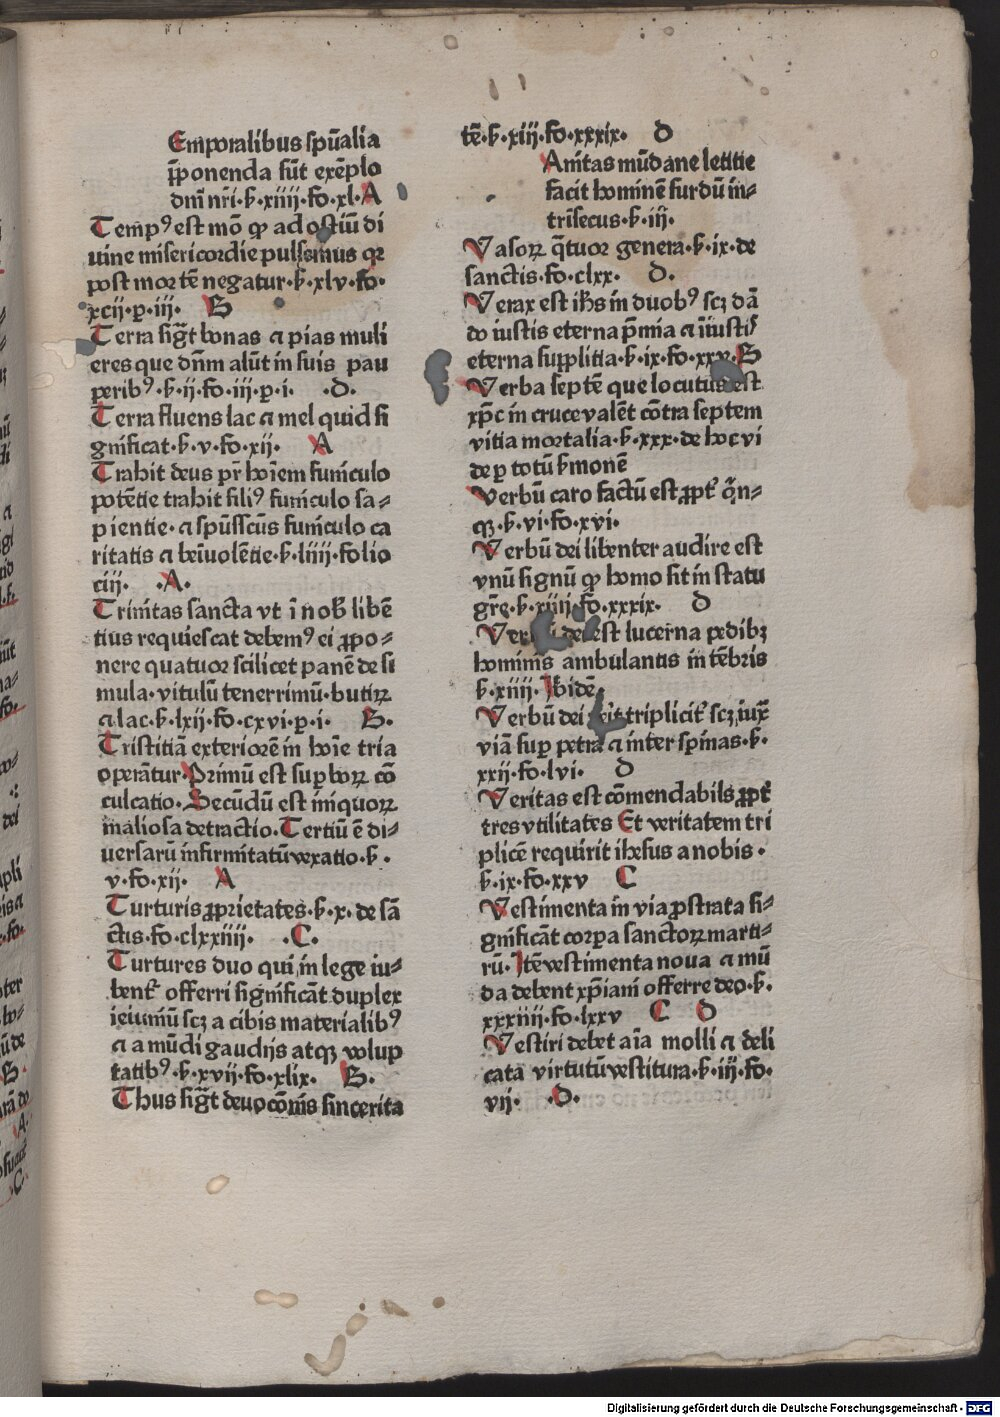 Emporalibus spũalia
p̄ponenda sũt exẽplo
dnĩ nr̃i·ẜ·xiiij·fo·xl·A
Tempꝰ est mõ ꝙ ad ostiũ di
uine misericordie pulsemus qꝛ
post mortẽ negatur·ẜ·xlv·fo·
xcij·p·iij· B
Terra sig̃t bonas ⁊ pias muli
eres que dn̄m alũt in suis pau
peribꝰ·ẜ·ij·fo·iij·p·i· ·D·
Terra fluens lac ⁊ mel quid si
gnificat·ẜ·v·fo·xij· A
Trahit deus pr̃ hoĩem funiculo
potẽtie trahit filiꝰ funiculo sa-
pientie·⁊ spũsscũs funiculo ca
ritatis ⁊ beĩuolẽtie·ẜ·liiij·folio
ciij· ·A·
Trinitas sancta vt ĩ nob̃ libẽ
tius requiescat debemꝰ ei ꝓpo-
nere quatuor scilicet panẽ de si
mula·vitulũ tenerrimũ·butiꝝ
⁊ lac·ẜ·lxij·fo·cxvi·p·i· B·
Tristitiã exteriorẽ in hoĩe tria
operãtur·Primũ est supboꝝ cõ
culcatio·Secũdũ est iniquoꝝ
maliosa detractio·Tertiũ ẽ di-
uersarũ infirmitatũ vexatio·ẜ·
v·fo·xij· A
Turturis ꝓprietates·ẜ·x·de sã
ctis·fo·clxxiiij· ·C·
Turtures duo qui in lege iu-
bent᷑ offerri significãt duplex
ieiuniũ scꝫ a cibis materialibꝰ
⁊ a mũdi gaudijs atqꝫ volup
tatibꝰ·ẜ·xvij·fo·xlix· B·
Thus sig̃t deuocõnis sincerita
tẽ·ẜ·xiij·fo·xxxix· D
Anitas mũdane letitie
facit hominẽ surdũ in-
trisecus·ẜ·iij·
Vasoꝝ q̃tuor genera·ẜ·ix·de
sanctis·fo·clxx· D·
Verax est ih̃s in duobꝰ scꝫ dã
do iustis eterna p̃mia ⁊ iĩustis
eterna supplitia·ẜ·ix·fo·xxv·B
Verba septẽ que locutus est
xp̃c in cruce valẽt cõtra septem
vitia mortalia·ẜ·xxx·de hoc vi
de p totũ ẜmonẽ
Verbũ caro factũ est ꝓpt᷑ q̃n-
qꝫ·ẜ·vi·fo·xvi·
Verbũ dei libenter audire est
vnũ signũ ꝙ homo sit in statu
gr̃e·ẜ·xiiij·fo·xxxix· D
est lucerna pedibꝫ
hominis ambulantis in tẽbris
ẜ·xiiij·Ibidẽ
Verbũ dei triplicit᷑ scꝫ iuxͣ
viã sup petrã ⁊ inter spinas·ẜ·
xxij·fo·lvi· D
Veritas est cõmendabils ꝓpt᷑
tres vtilitates Et veritatem tri
plicẽ requirit ihesus a nobis·
ẜ·ix·fo·xxv C
Vestimenta in via prostrata si-
gnificãt corpa sanctoꝝ marti-
rũ·Itẽ vestimenta noua ⁊ mũ
da debent xp̃iani offerre deo·ẜ·
xxxiiij·fo·lxxv C D
Vestiri debet aĩa molli ⁊ deli
cata virtutũ vestitura·ẜ·iij·fo·
vij· ·D·
Digitalisierung gefördert durch die Deutsche Forschungsgemeinschaft - DFG